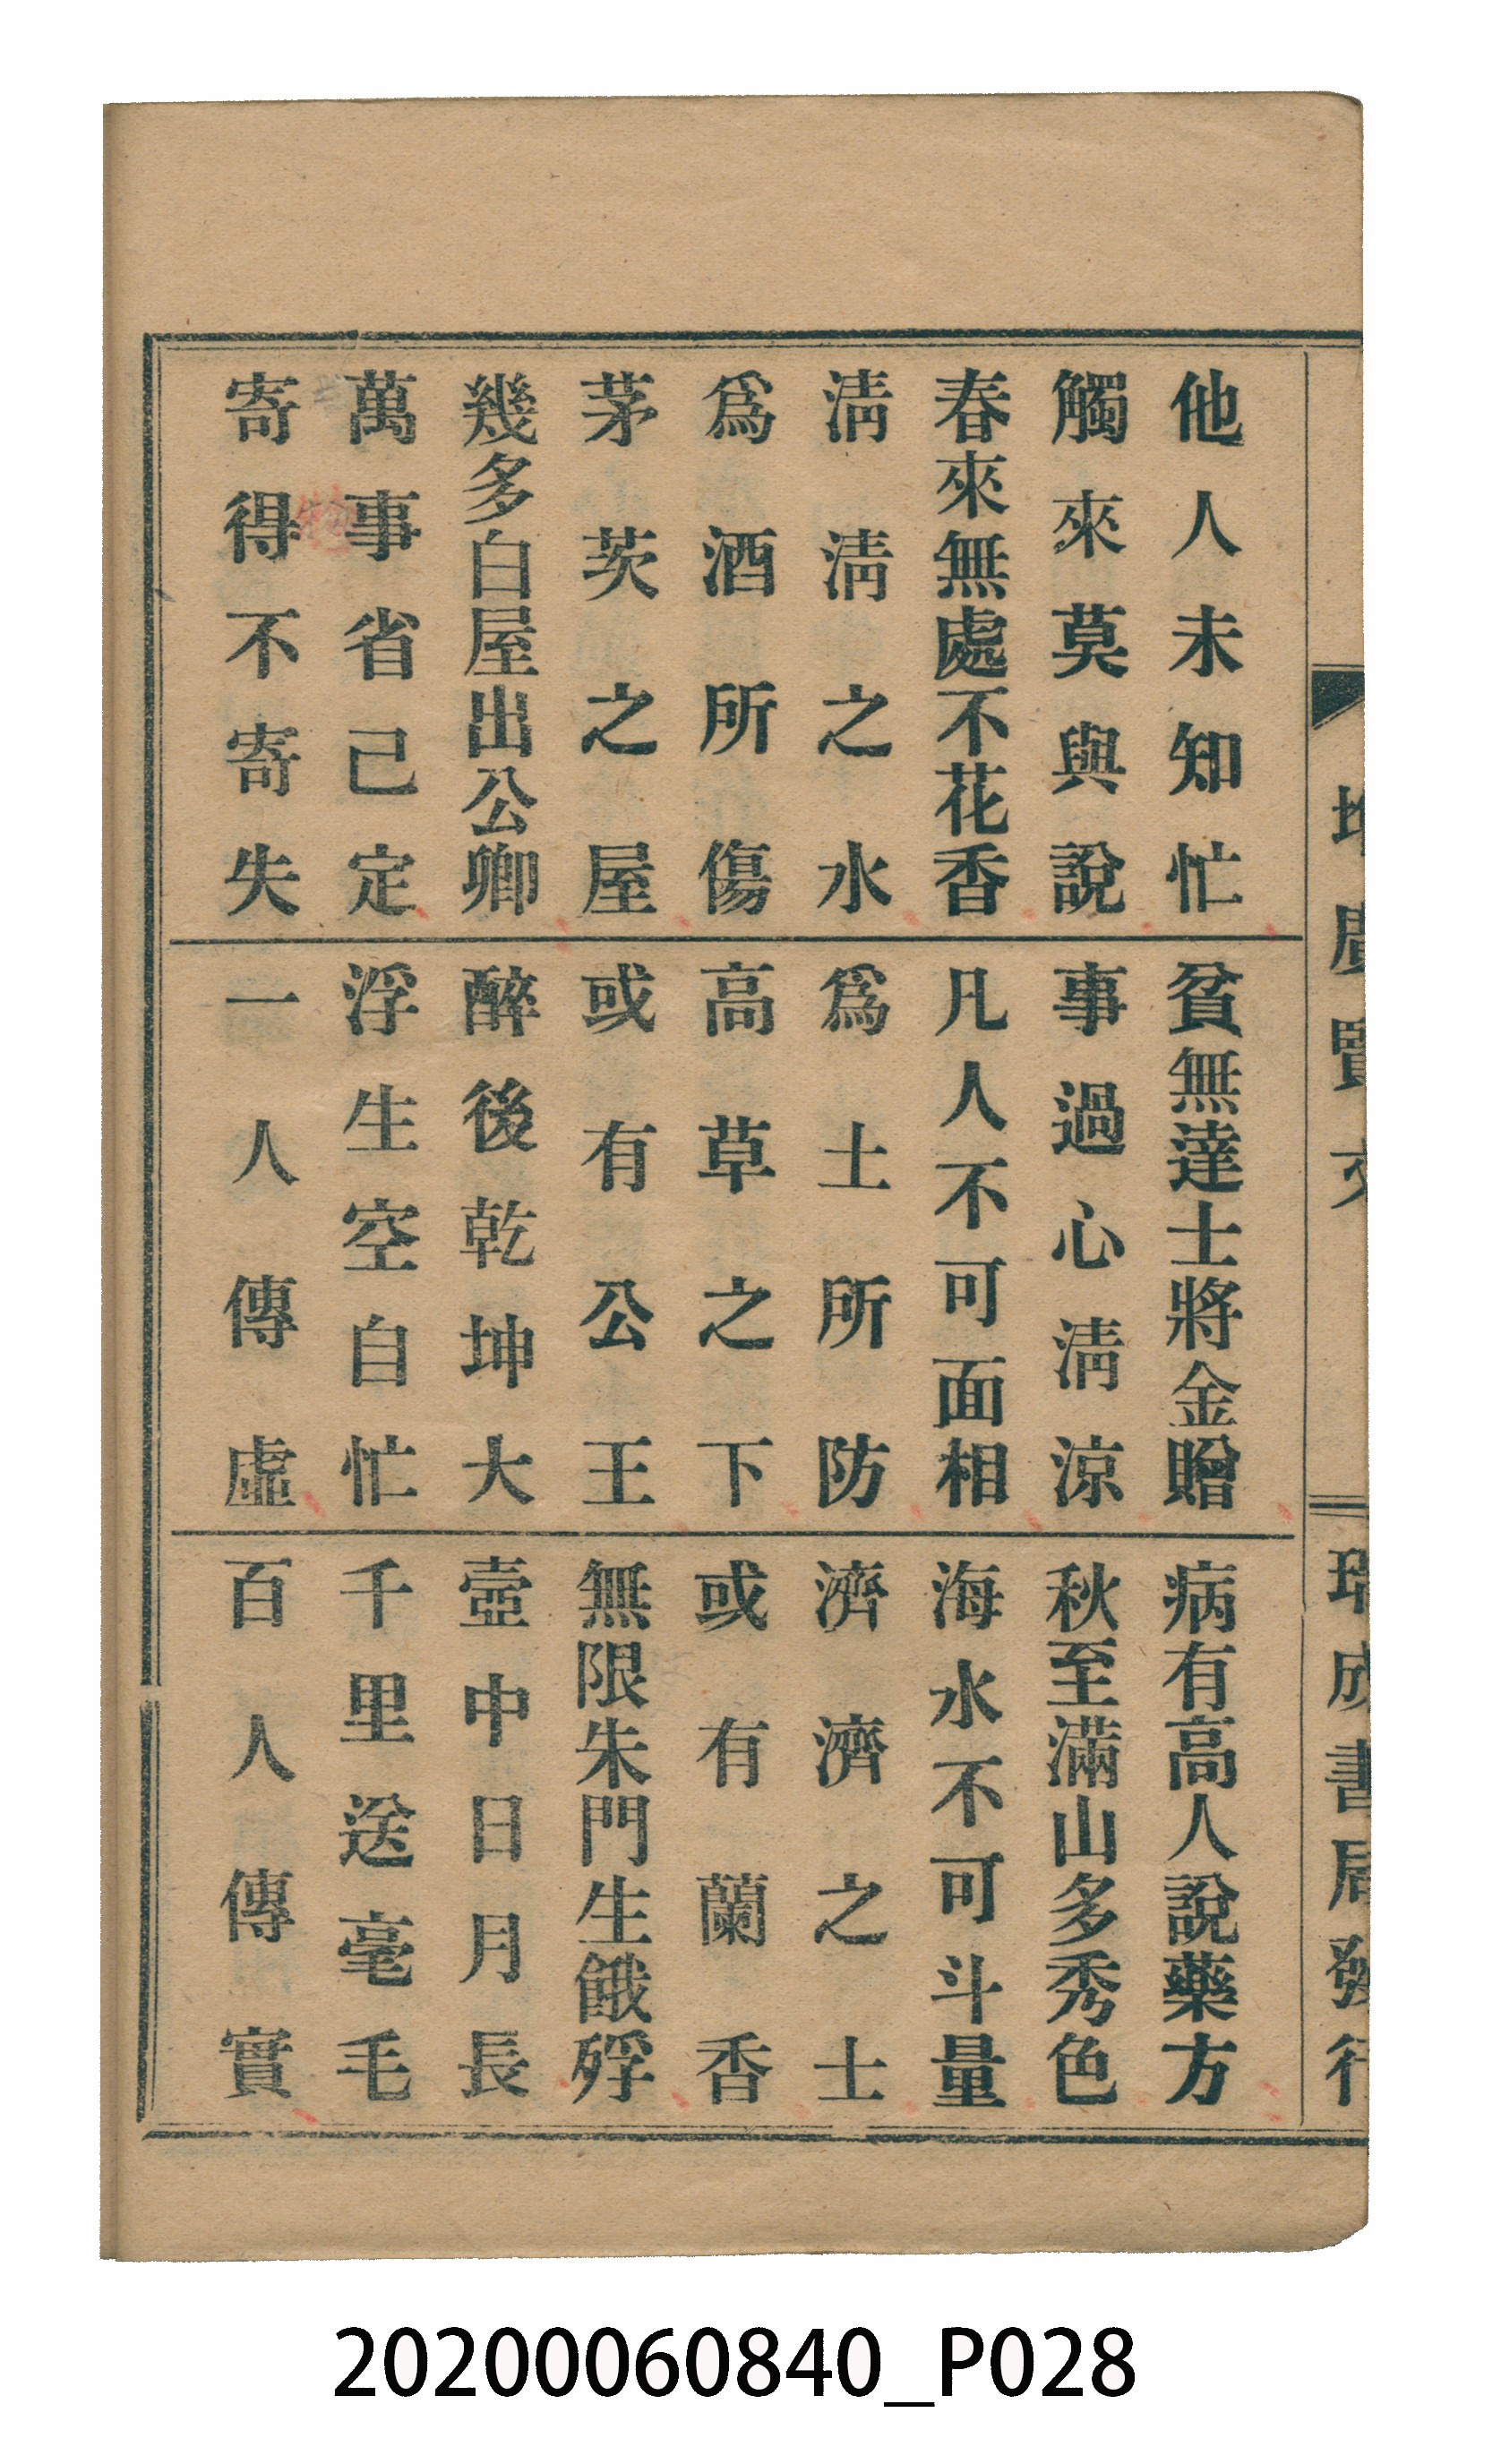 增廣賢文
瑞成書局發行
他人未知忙
貧無達士將金贈
病有高人說藥方
觸來莫與說
事過心淸涼
秋至滿山多秀色
春來無處不花香
凡人不可面相
海水不可斗量
淸淸之水
爲土所防
濟濟之士
爲酒所傷
高草之下
或有蘭香
茅茨之屋
或有公王
無限朱門生餓殍
幾多白屋出公卿
醉後乾坤大
壺中日月長
萬事省己定
浮生空自忙
千里送毫毛
寄得不寄失
一人傳虛
百人傳實
20200060840_P028